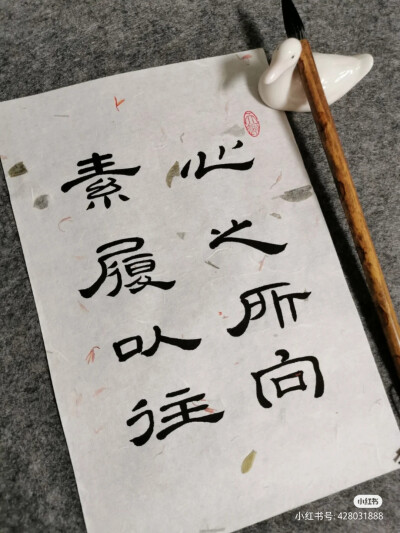 心之所向
素履以往
小红书
小红书号:428031888